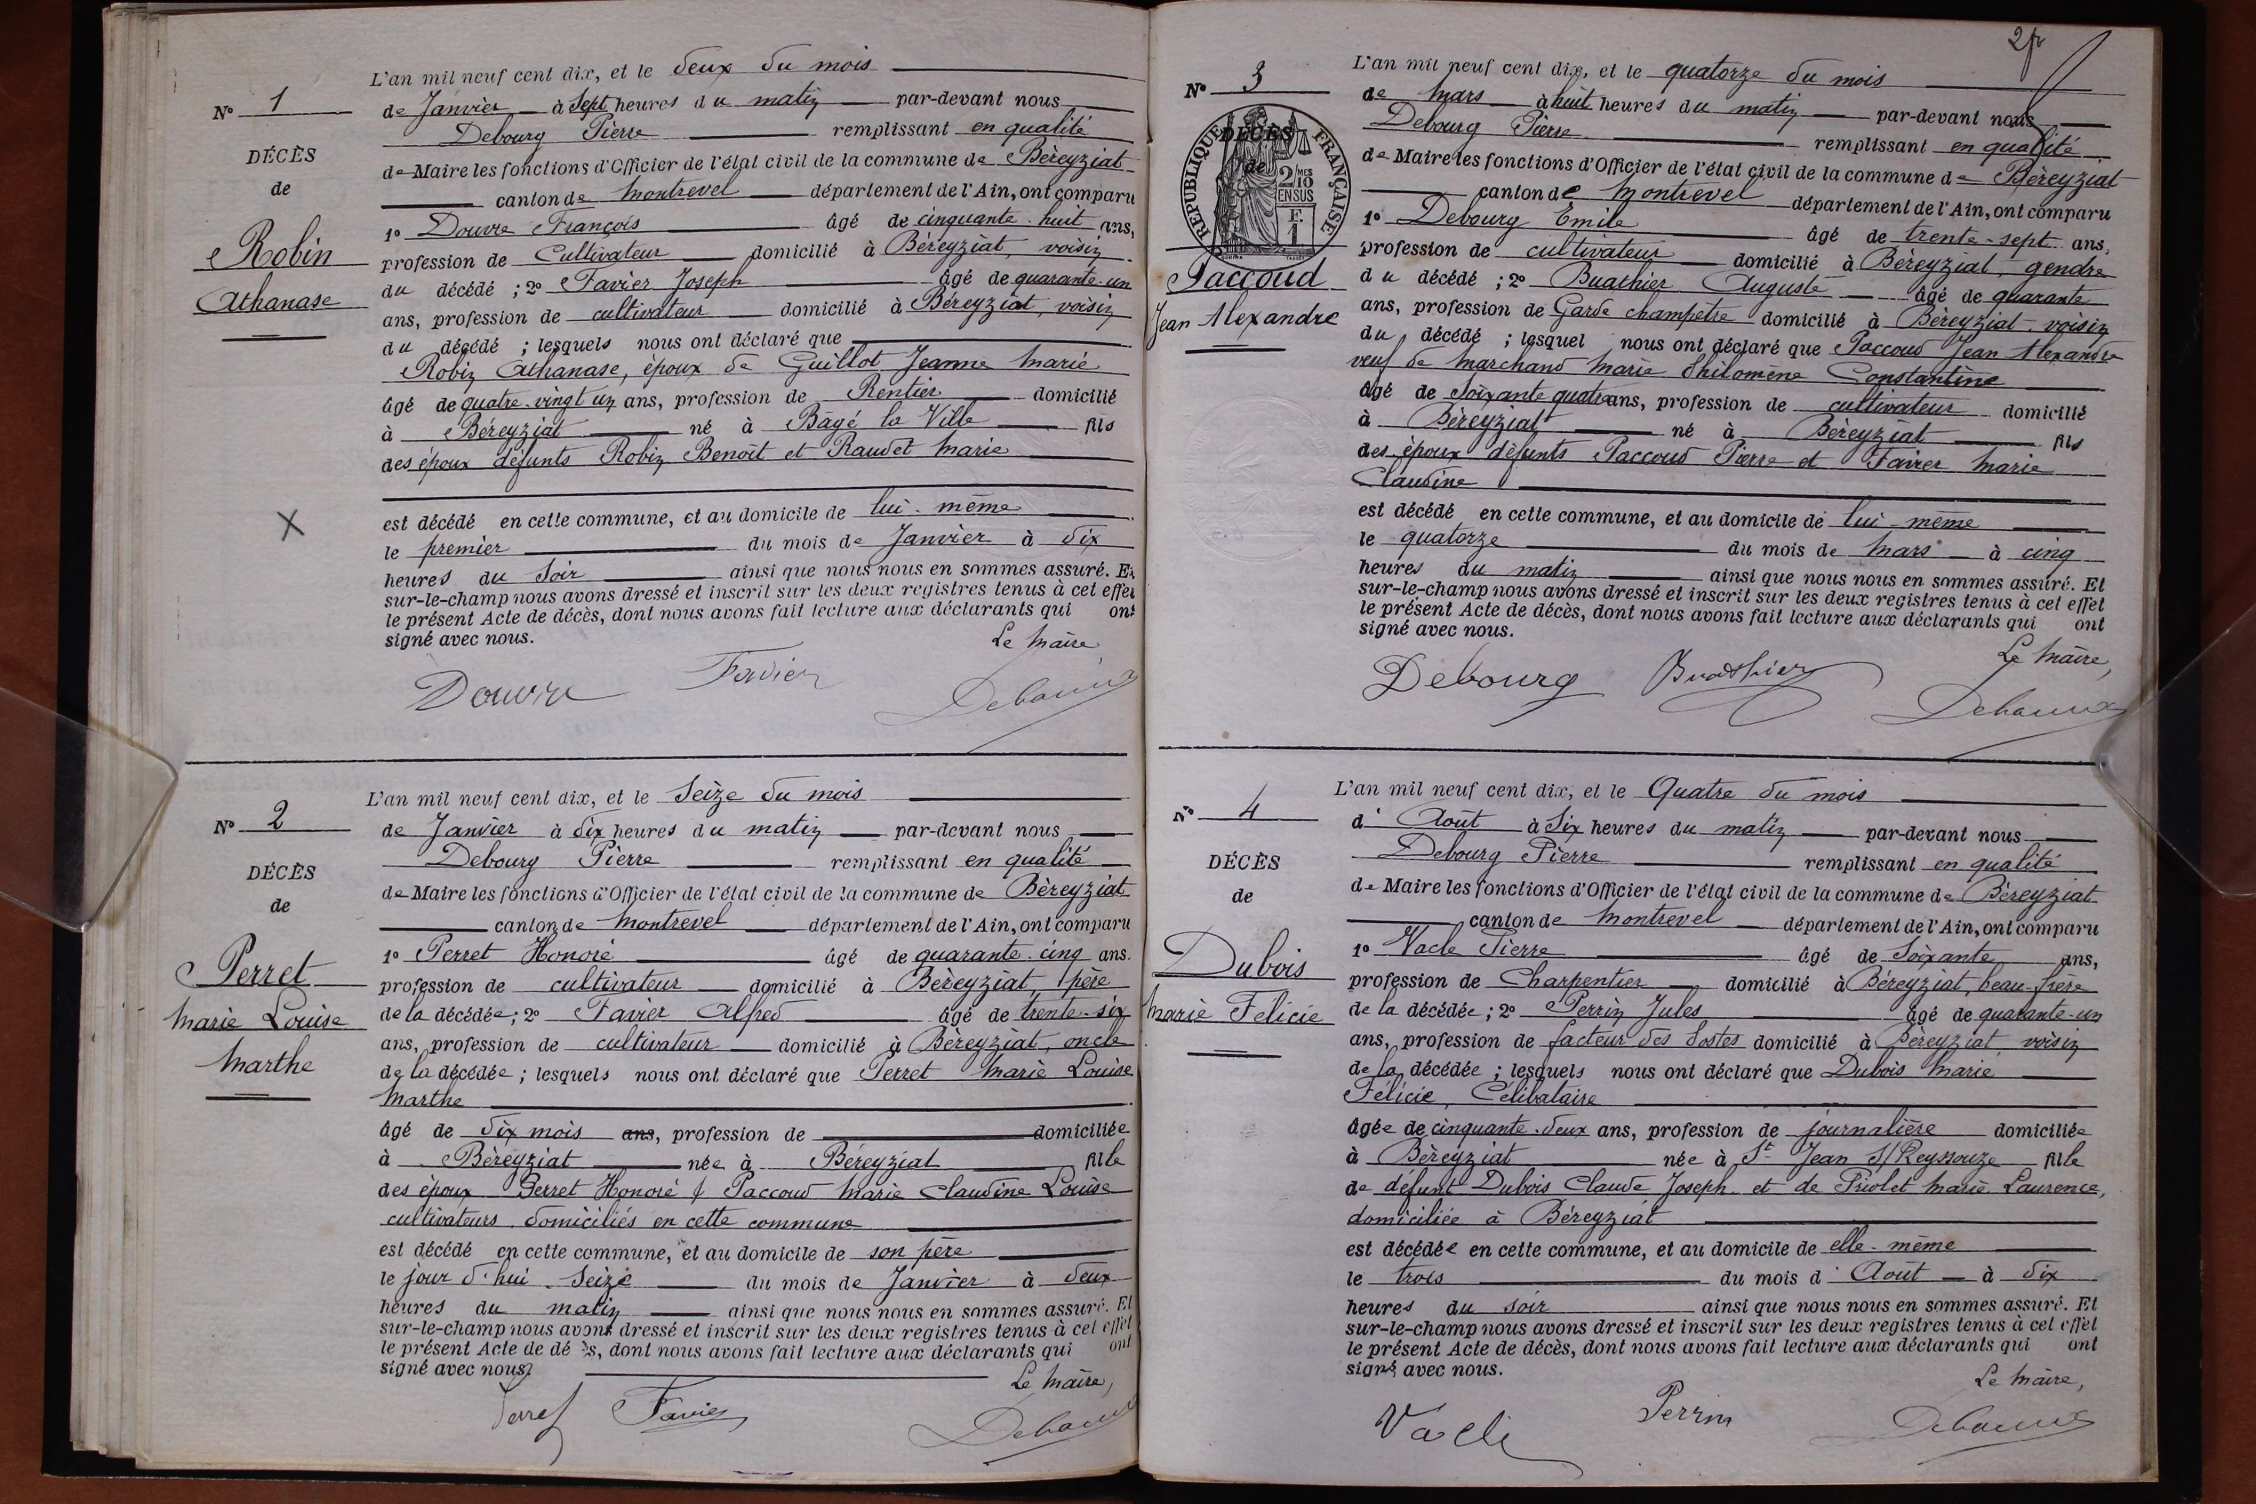 L'an mil neuf cent dix, et le deux du mois
N° 1
de Janvier à Sept heures du matin par-devant nous
Debourg Pierre remplissant en qualité
DÉCÈS
de Maire les fonctions d'Officier de l'état civil de la commune de Béreyziat
de
canton de Montrevel département de l'Ain, ont comparu
1° Douvre François âgé de cinquante-huit ans,
Robin
profession de Cultivateur domicilié à Béreyziat, voisin
du décédé ; 2° Favier Joseph âgé de quarante-un
Athanase
ans, profession de cultivateur domicilié à Béreyziat, voisin
du décédé ; lesquels nous ont déclaré que
Robin Athanase, époux de Guillot Jeanne Marie
âgé de quatre-vingt un ans, profession de Rentier domicilié
à Béreyziat né à Bâgé la Ville fils
des époux défunts Robin Benoît et Raudet Marie
X
est décédé en cette commune, et au domicile de lui-même
le premier du mois de Janvier à dix
heures du soir ainsi que nous nous en sommes assuré. Et
sur-le-champ nous avons dressé et inscrit sur les deux registres tenus à cet effet
le présent Acte de décès, dont nous avons fait lecture aux déclarants qui ont
signé avec nous.
Le Maire
Douvre Favier Debourg
L'an mil neuf cent dix, et le Seize du mois
N° 2
de Janvier à dix heures du matin par-devant nous
Debourg Pierre remplissant en qualité
DÉCÈS
de Maire les fonctions d'Officier de l'état civil de la commune de Béreyziat
de
canton de Montrevel département de l'Ain, ont comparu
1° Perret Honoré âgé de quarante-cinq ans.
Perret
profession de cultivateur domicilié à Béreyziat, père
Marie Louise
de la décédée ; 2° Favier Alfred âgé de trente-six
ans, profession de cultivateur domicilié à Béreyziat, oncle
Marthe
de la décédée ; lesquels nous ont déclaré que Perret Marie Louise
Marthe
âgé de dix mois ans, profession de domiciliée
à Béreyziat née à Béreyziat fille
des époux Perret Honoré & Paccoud Marie Claudine Louise
cultivateurs domiciliés en cette commune
est décédé en cette commune, et au domicile de son père
le jour d'hui Seize du mois de Janvier à deux
heures du matin ainsi que nous nous en sommes assuré. Et
sur-le-champ nous avons dressé et inscrit sur les deux registres tenus à cet effet
le présent Acte de dé s, dont nous avons fait lecture aux déclarants qui ont
signé avec nous.
Le Maire,
Perret Favier Debourg
L'an mil neuf cent dix, et le quatorze du mois
N° 3
de Mars à huit heures du matin par-devant nous
Debourg Pierre remplissant en qualité
DÉCÈS
de
RÉPUBLIQUE FRANÇAISE
2 MES 10 EN SUS
F. 1
de Maire les fonctions d'Officier de l'état civil de la commune de Béreyziat
canton de Montrevel département de l'Ain, ont comparu
1° Debourg Émile âgé de trente-sept ans,
profession de cultivateur domicilié à Béreyziat, gendre
Paccoud
du décédé ; 2° Buathier Auguste âgé de quarante
Jean Alexandre
ans, profession de Garde champêtre domicilié à Béreyziat voisin
du décédé ; lesquel nous ont déclaré que Paccoud Jean Alexandre
veuf de Marchand Marie Philomène Constantine
âgé de Soixante quatre ans, profession de cultivateur domicilié
à Béreyziat né à Béreyziat fils
des époux défunts Paccoud Pierre et Favier Marie
Claudine
est décédé en cette commune, et au domicile de lui-même
le quatorze du mois de Mars à cinq
heures du matin ainsi que nous nous en sommes assuré. Et
sur-le-champ nous avons dressé et inscrit sur les deux registres tenus à cet effet
le présent Acte de décès, dont nous avons fait lecture aux déclarants qui ont
signé avec nous.
Le Maire,
Debourg Buathier Debourg
L'an mil neuf cent dix, et le Quatre du mois
N° 4
d'Août à Six heures du matin par-devant nous
Debourg Pierre remplissant en qualité
DÉCÈS
de Maire les fonctions d'Officier de l'état civil de la commune de Béreyziat
de
canton de Montrevel département de l'Ain, ont comparu
1° Vacle Pierre âgé de Soixante ans,
Dubois
profession de Charpentier domicilié à Béreyziat, beau-frère
Marie Félicie
de la décédée ; 2° Perrin Jules âgé de quarante-un
ans, profession de facteur des Postes domicilié à Béreyziat, voisin
de la décédée ; lesquels nous ont déclaré que Dubois Marie
Félicie, Célibataire
âgée de cinquante-deux ans, profession de journalière domiciliée
à Béreyziat née à St Jean s/Reyssouze fille
de défunt Dubois Claude Joseph et de Priolet Marie Laurence,
domiciliée à Béreyziat
est décédée en cette commune, et au domicile de elle-même
le trois du mois d'Août à dix
heures du soir ainsi que nous nous en sommes assuré. Et
sur-le-champ nous avons dressé et inscrit sur les deux registres tenus à cet effet
le présent Acte de décès, dont nous avons fait lecture aux déclarants qui ont
signé avec nous.
Le Maire,
Vacle Perrin Debourg